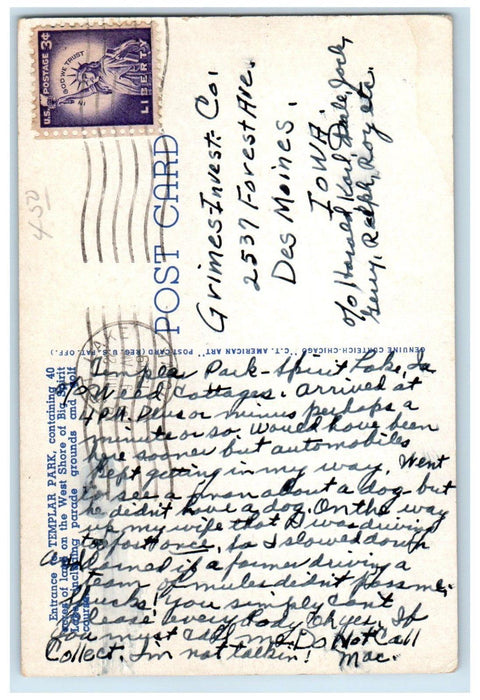 U.S. POSTAGE 3¢
IN GOD WE TRUST
LIBERTY
4.50
POST CARD
Grimes Invest. Co.
2537 Forest Ave.
Des Moines.
IOWA
c/o Harold, Karl, Dale, Jack,
Gerry, Ralph, Roy etc.
GENUINE CURTEICH-CHICAGO "C.T. AMERICAN ART" POST CARD (REG. U.S. PAT. OFF.)
Entrance to TEMPLAR PARK, containing 40
acres of land on the West Shore of Big Spirit
Lake, including parade grounds and golf
course.
Templar Park - Spirit Lake, Ia
c/o Weed Cottages. Arrived at
4 P.M. Plus or minus perhaps a
minute or so. Would have been
here sooner but automobiles
kept getting in my way. Went
to see a man about a dog but
he didn't have a dog. On the way
up my wife that I was driving
too fast once, so I slowed down
and darned if a farmer driving a
team of mules didn't pass me.
Shucks! You simply can't
please everybody. Oh yes. If
you must call me - Do Not Call
Collect. I'm not talkin!
Mac.